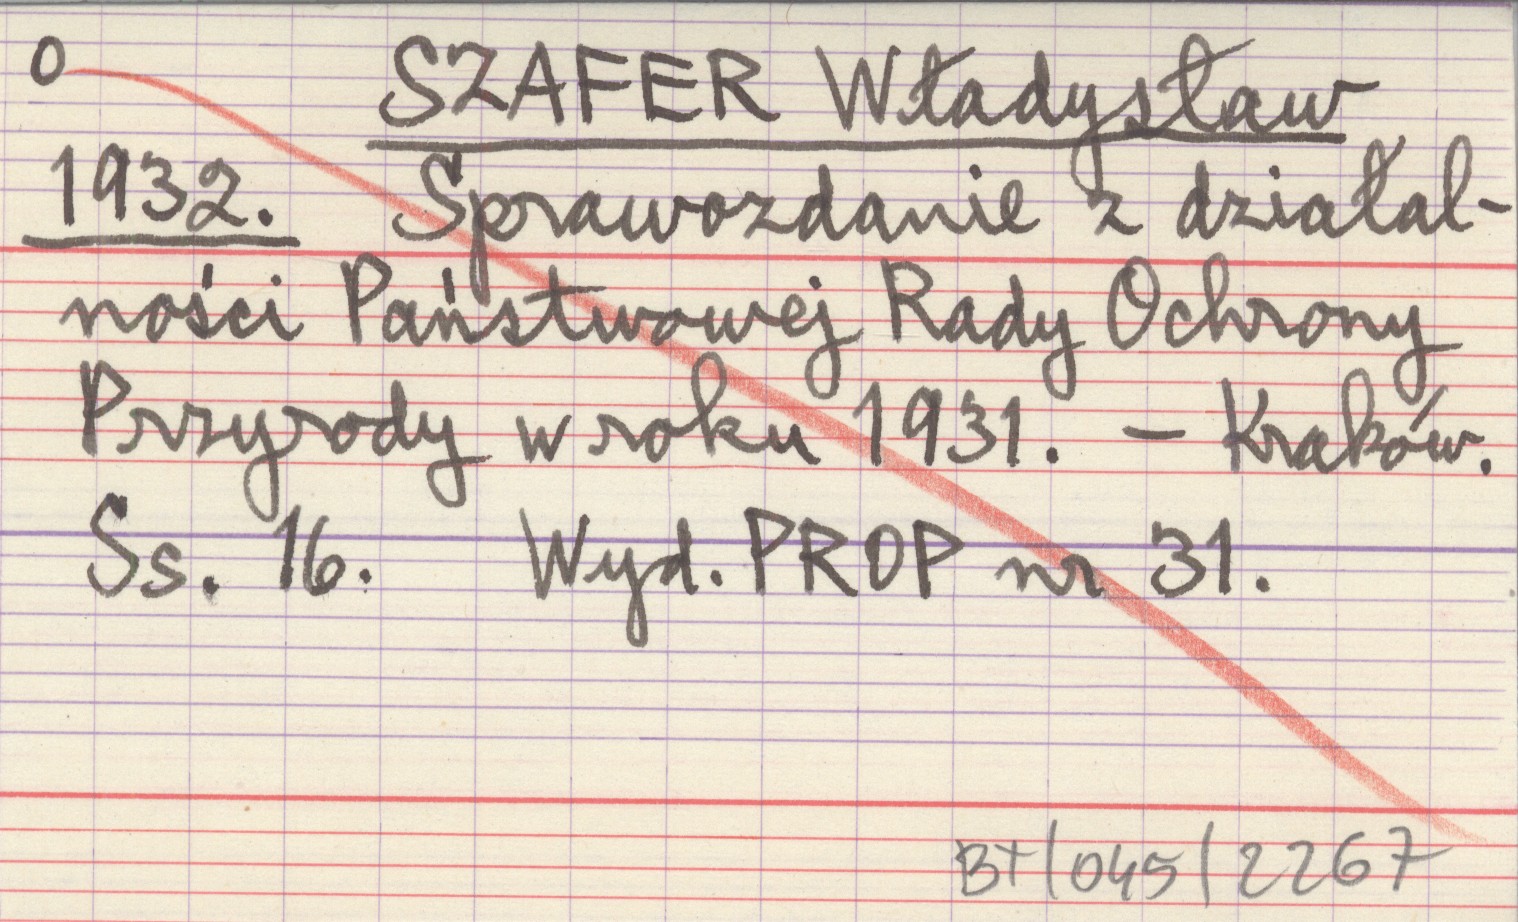 O SZAFER Władysław
1932. Sprawozdanie z działal-
ności Państwowej Rady Ochrony
Przyrody w roku 1931. – Kraków.
Ss. 16. Wyd. PROP nr 31.
BT/045/2267